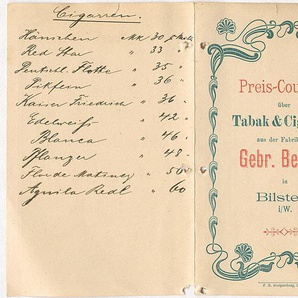 Cigarren.
Hänschen Mk 30,
Red Star " 33 "
Deutschl. Flotte " 35 "
Pikfein " 36 "
Kaiser Friedrich " 36 "
Edelweiss " 42 "
Blanca " 46 "
Pflanzer " 48 "
Flor de Matanez " 50 "
Aguila Real " 60
Preis-Cou
über
Tabak & Cig
aus der Fabrik
Gebr. Be
in
Bilste
i/W.